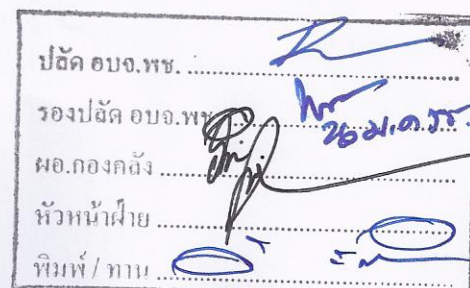 ปลัด อบจ.พช. ........................
รองปลัด อบจ.พช. ........................
ผอ.กองคลัง ........................
หัวหน้าฝ่าย ........................
พิมพ์ / ทาน ........................